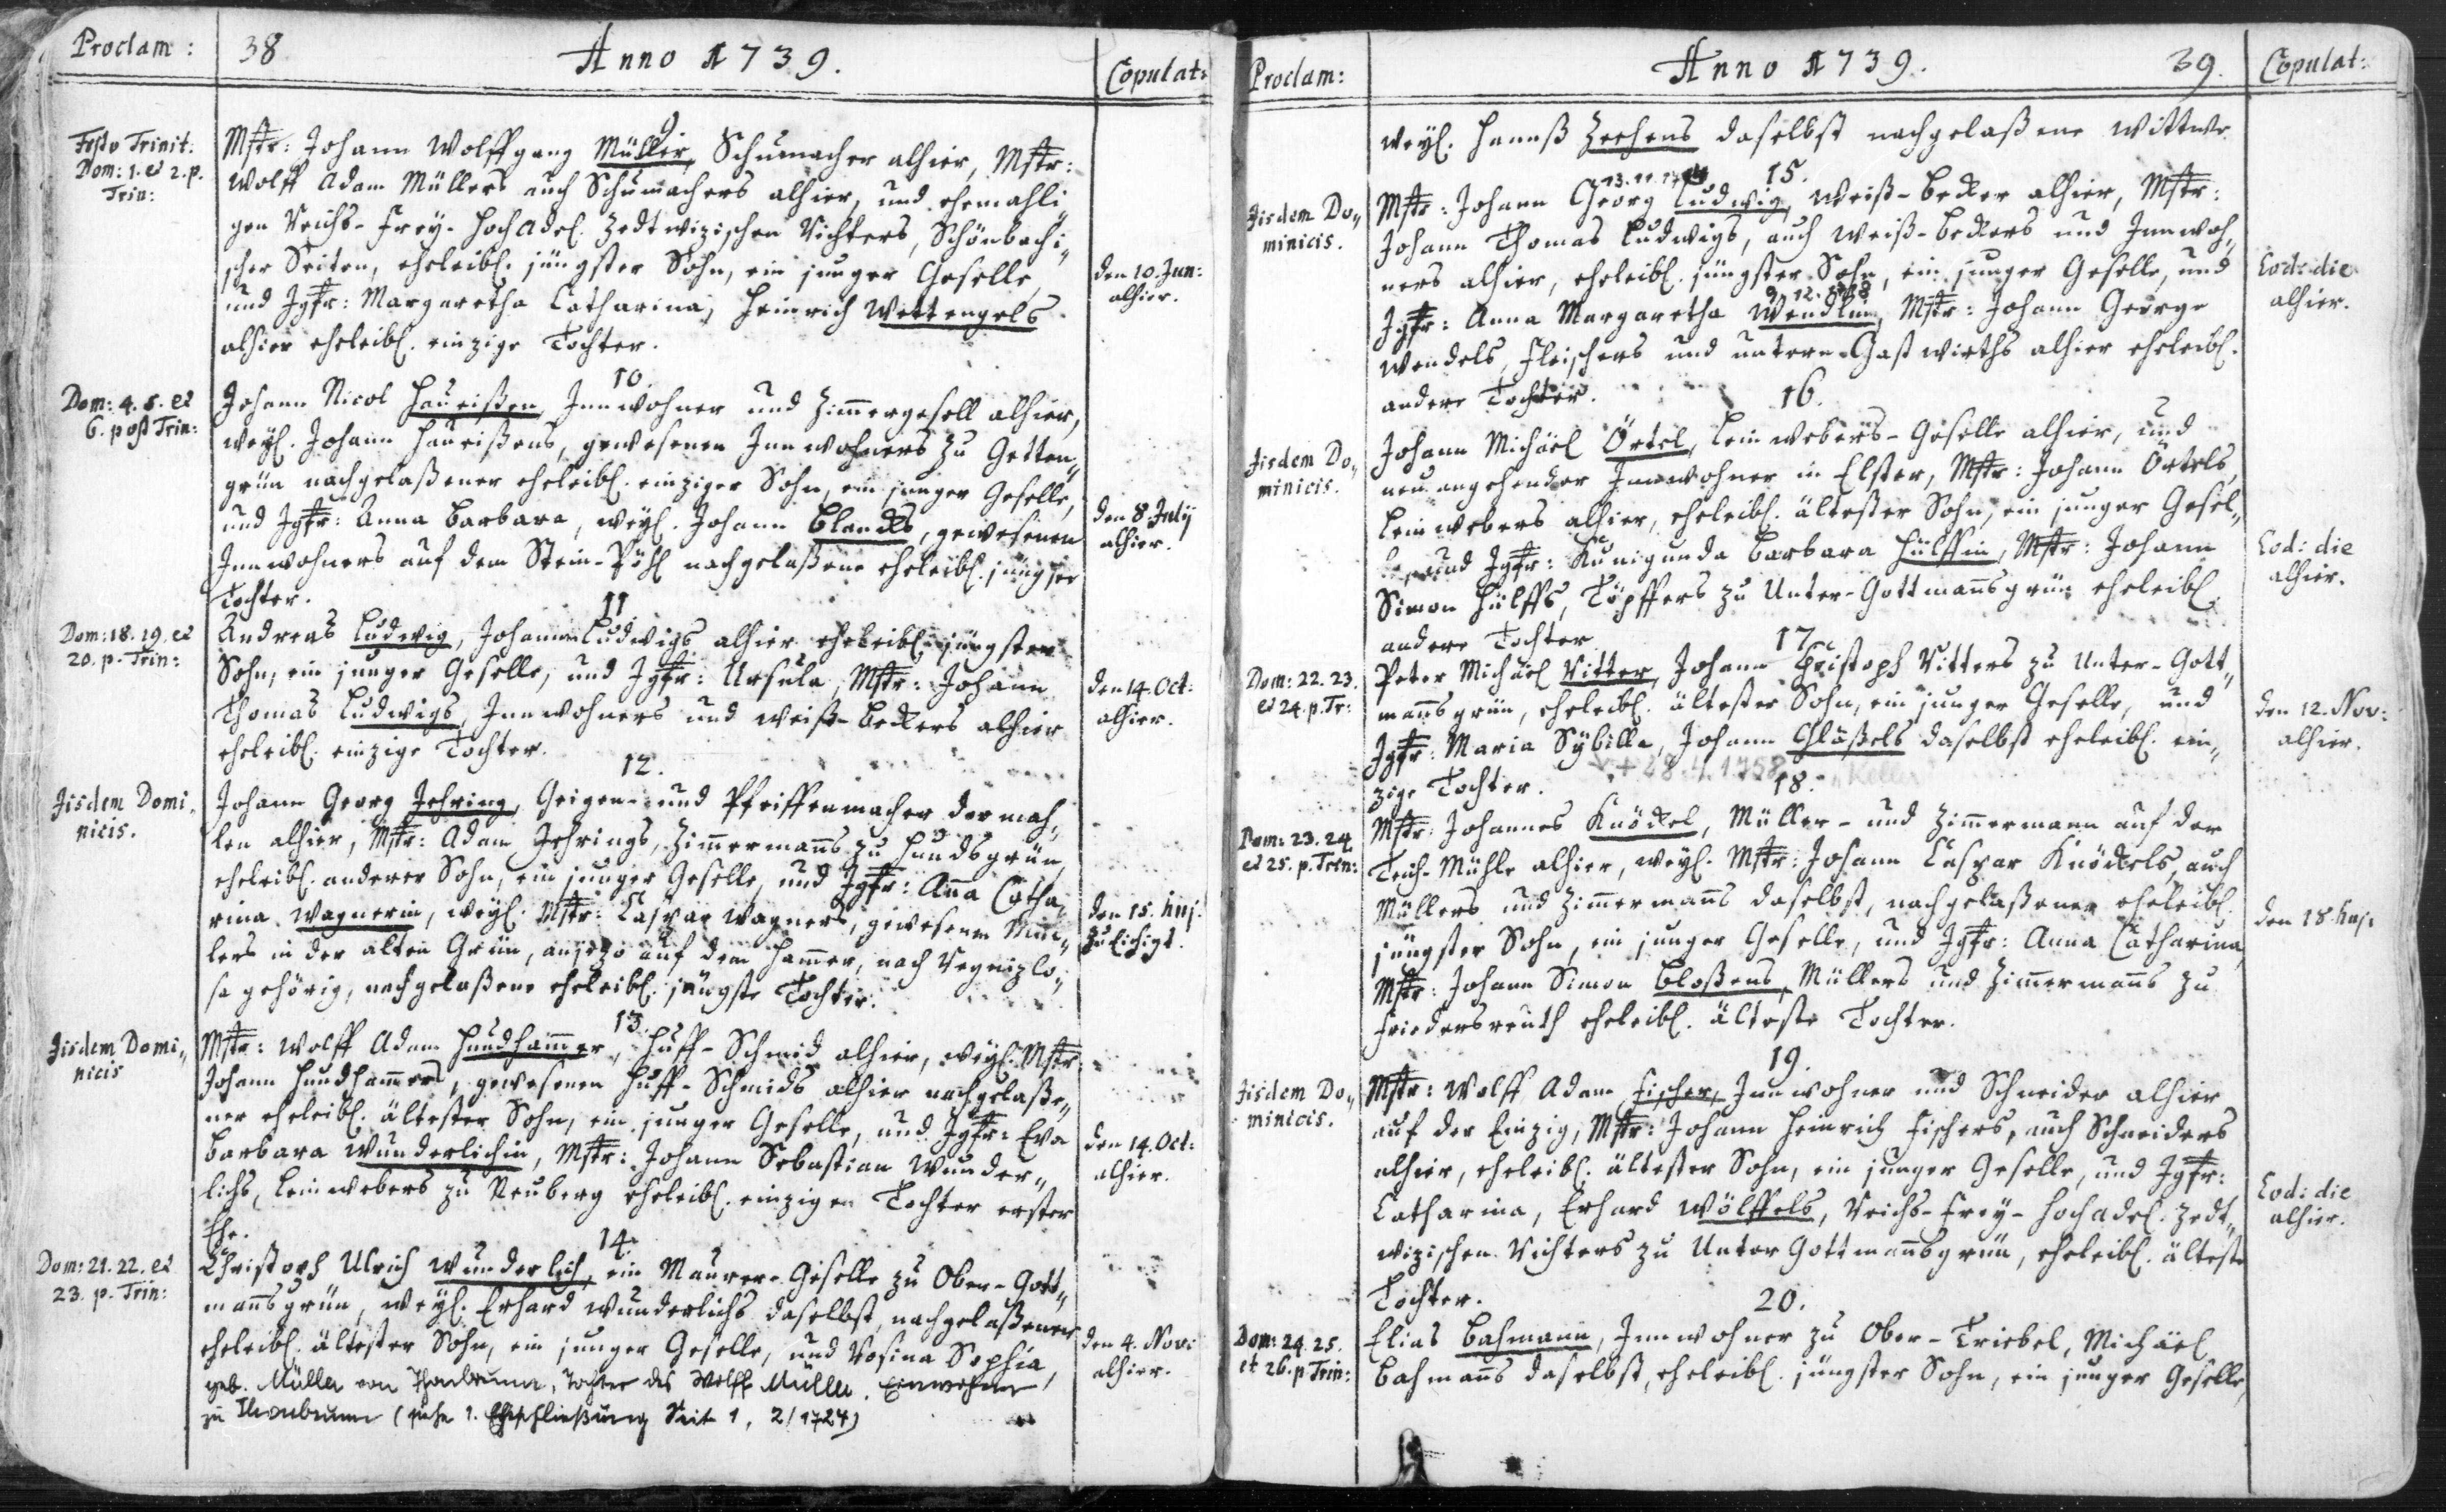 Proclam: 38 Anno 1739. Copulat:
9.
Festo Trinit:
Dom: 1. et 2. p.
Trin:
Mstr: Johann Wolffgang Müller, Schumacher alhier, Mstr:
Wolff Adam Müllers auch Schumachers alhier, und ehemahli„
gen Reichs-Frey-Hochadel. Zedtwizischen Richters, Schönbachi„
scher Seiten, eheleibl. jüngster Sohn, ein junger Geselle,
und Jgfr: Margaretha Catharina, Heinrich Wettengels
alhier eheleibl. einzige Tochter.
den 10. Jun:
alhier.
10.
Dom: 4. 5. et
6. post Trin:
Johann Nicol Haueißen, Innwohner und Zimmergesell alhier,
weyl. Johann Haueißens, gewesenen Innwohners zu Getten„
grün nachgelaßener eheleibl. einziger Sohn, ein junger Geselle,
und Jgfr: Anna Barbara, weyl. Johann Blancks, gewesenen
Innwohners auf dem Stein-Pöhl nachgelaßene eheleibl. jüngste
Tochter.
den 8. July
alhier.
11.
Dom: 18. 19. et
20. p. Trin:
Andreas Ludwig, Johann Ludwigs alhier eheleibl. jüngster
Sohn, ein junger Geselle, und Jgfr: Ursula, Mstr: Johann
Thomas Ludwigs, Innwohners und Weiß-Beckers alhier
eheleibl. einzige Tochter.
den 14. Oct:
alhier.
12.
Iisdem Domi„
nicis.
Johann Georg Jehring, Geigen- und Pfeiffenmacher der mah„
len alhier, Mstr: Adam Jehrings, Zimmermanns zu Hundsgrün,
eheleibl. anderer Sohn, ein junger Geselle, und Jgfr: Anna Catha„
rina Wagnerin, weyl. Mstr: Caspar Wagners, gewesenen Mül„
lers in der alten Grün, anjezo auf dem Hammer, nach Regnizlo„
sa gehörig, nachgelaßene eheleibl. jüngste Tochter.
den 15. huj.
zu Eichigt.
13.
Iisdem Domi„
nicis
Mstr: Wolff Adam Hundhammer, Huff-Schmid alhier, weyl. Mstr:
Johann Hundhammers, gewesenen Huff-Schmids alhier nachgelaße„
ner eheleibl. ältester Sohn, ein junger Geselle, und Jgfr: Eva
Barbara Wunderlichin, Mstr: Johann Sebastian Wunder„
lichs, Leinwebers zu Neuberg eheleibl. einzigen Tochter erster
Ehe.
den 14. Oct:
alhier.
14.
Dom: 21. 22. et
23. p. Trin:
Christoph Ulrich Wunderlich, ein Maurer-Geselle zu Ober-Gott„
mannsgrün, weyl. Erhard Wunderlichs daselbst, nachgelaßener
eheleibl. ältester Sohn, ein junger Geselle, und Rosina Sophia,
geb. Müller von Thonbrunn, Tochter des Wolff Müller, Einwohner
zu Thonbrunn (siehe 1. Eheschließung Seite 1, 2/1724)
den 4. Nov:
alhier.
Proclam: Anno 1739. 39. Copulat:
weyl. Hannß Zeehens daselbst nachgelaßene Wittwe
15.
Iisdem Do„
minicis.
Mstr: Johann Georg Ludwig, Weiß-Becker alhier, Mstr:
Johann Thomas Ludwigs, auch Weiß-Beckers und Innwoh„
ners alhier, eheleibl. jüngster Sohn, ein junger Geselle, und
Jgfr: Anna Margaretha Wendlin, Mstr: Johann George
Wendels, Fleischers und untern Gastwirths alhier eheleibl.
andere Tochter.
Eod: die
alhier.
16.
Iisdem Do„
minicis.
Johann Michael Örtel, Leinwebers-Geselle alhier, und
neu angehender Innwohner in Elster, Mstr: Johann Örtels,
Leinwebers alhier, eheleibl. ältester Sohn, ein junger Gesel„
und Jgfr: Kunigunda Barbara Hülffin, Mstr: Johann
Simon Hülffs, Töpffers zu Unter-Gottmannsgrün eheleibl.
andere Tochter
Eod: die
alhier.
17.
Dom: 22. 23.
et 24. p. Tr:
Peter Michael Ritter, Johann Christoph Ritters zu Unter-Gott„
mannsgrün, eheleibl. ältester Sohn, ein junger Geselle, und
Jgfr: Maria Sybilla, Johann Gläßels daselbst eheleibl. ein„
zige Tochter.
den 12. Nov:
alhier.
18.
Dom: 23. 24.
et 25. p. Trin:
Mstr: Johannes Knöckel, Müller- und Zimmermann auf der
Teich-Mühle alhier, weyl. Mstr: Johann Caspar Knöckels, auch
Müllers und Zimmermanns daselbst, nachgelaßener eheleibl.
jüngster Sohn, ein junger Geselle, und Jgfr: Anna Catharina,
Mstr: Johann Simon Bloßens, Müllers und Zimmermanns zu
Friedersreuth eheleibl. älteste Tochter.
den 18. huj.
19.
Iisdem Do„
minicis.
Mstr: Wolff Adam Fischer, Innwohner und Schneider alhier
auf der Einzig, Mstr: Johann Heinrich Fischers, auch Schneiders
alhier, eheleibl. ältester Sohn, ein junger Geselle, und Jgfr:
Catharina, Erhard Wölffels, Reichs-Frey-Hochadel. Zedt„
wizischen Richters zu Unter Gottmannsgrün, eheleibl. älteste
Tochter.
Eod: die
alhier.
20.
Dom: 24. 25.
et 26. p Trin:
Elias Bahmann, Innwohner zu Ober-Triebel, Michael
Bahmanns daselbst, eheleibl. jüngster Sohn, ein junger Geselle,